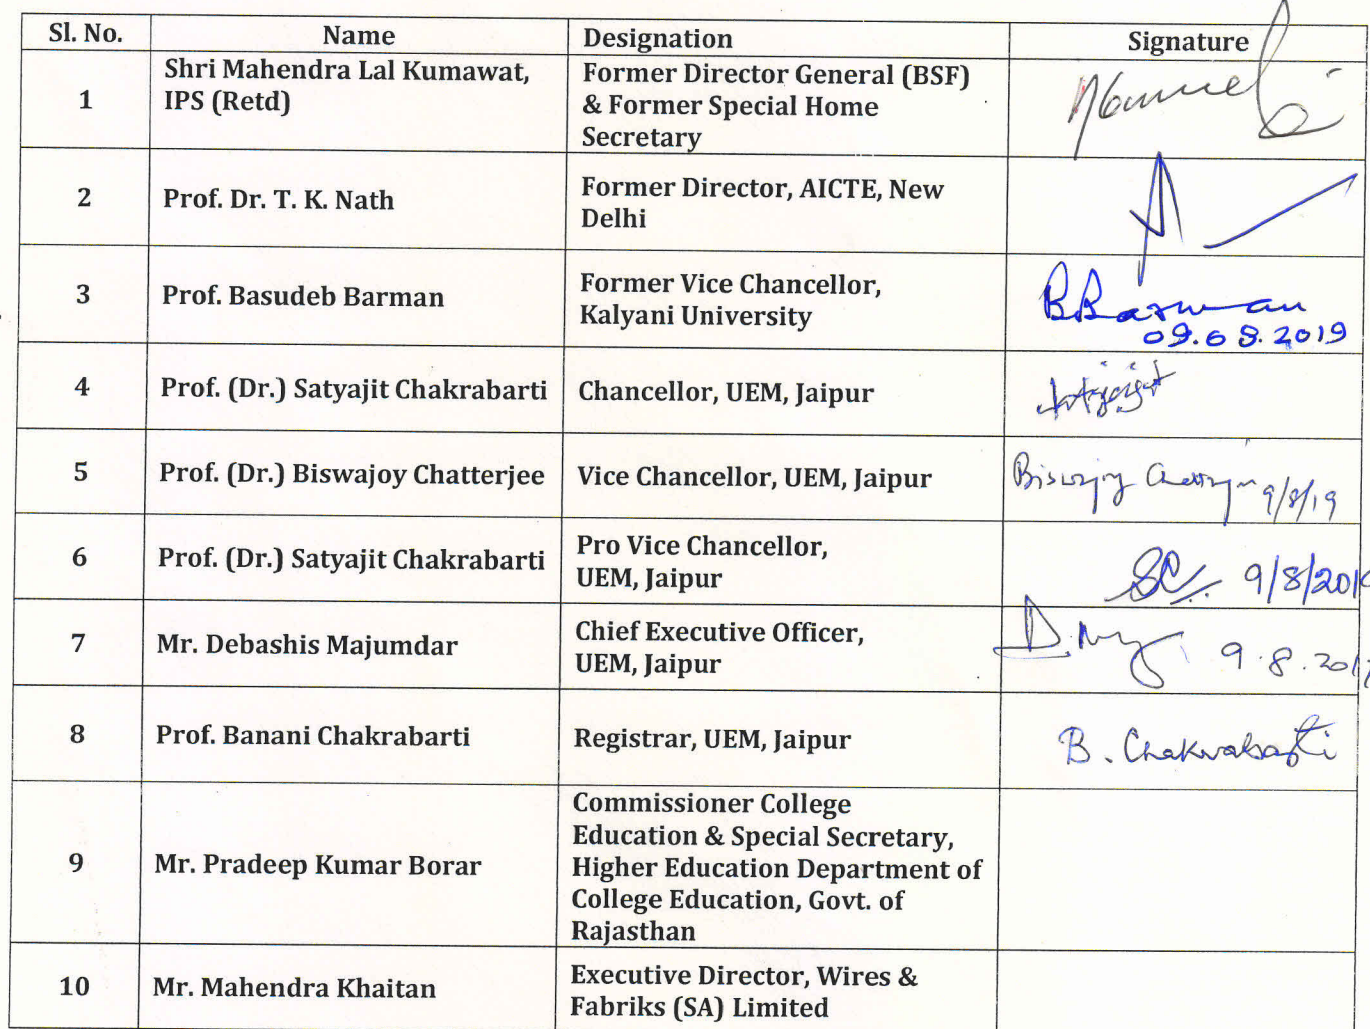 Sl. No. Name Designation Signature
1 Shri Mahendra Lal Kumawat, Former Director General (BSF)
IPS (Retd) & Former Special Home
Secretary
2 Prof. Dr. T. K. Nath Former Director, AICTE, New
Delhi
3 Prof. Basudeb Barman Former Vice Chancellor, B Barman
Kalyani University 09.08.2019
4 Prof. (Dr.) Satyajit Chakrabarti Chancellor, UEM, Jaipur
5 Prof. (Dr.) Biswajoy Chatterjee Vice Chancellor, UEM, Jaipur Biswajoy Chatterjee 9/8/19
6 Prof. (Dr.) Satyajit Chakrabarti Pro Vice Chancellor, 9/8/2019
UEM, Jaipur
7 Mr. Debashis Majumdar Chief Executive Officer, 9.8.2019
UEM, Jaipur
8 Prof. Banani Chakrabarti Registrar, UEM, Jaipur B. Chakrabarti
9 Mr. Pradeep Kumar Borar Commissioner College
Education & Special Secretary,
Higher Education Department of
College Education, Govt. of
Rajasthan
10 Mr. Mahendra Khaitan Executive Director, Wires &
Fabriks (SA) Limited